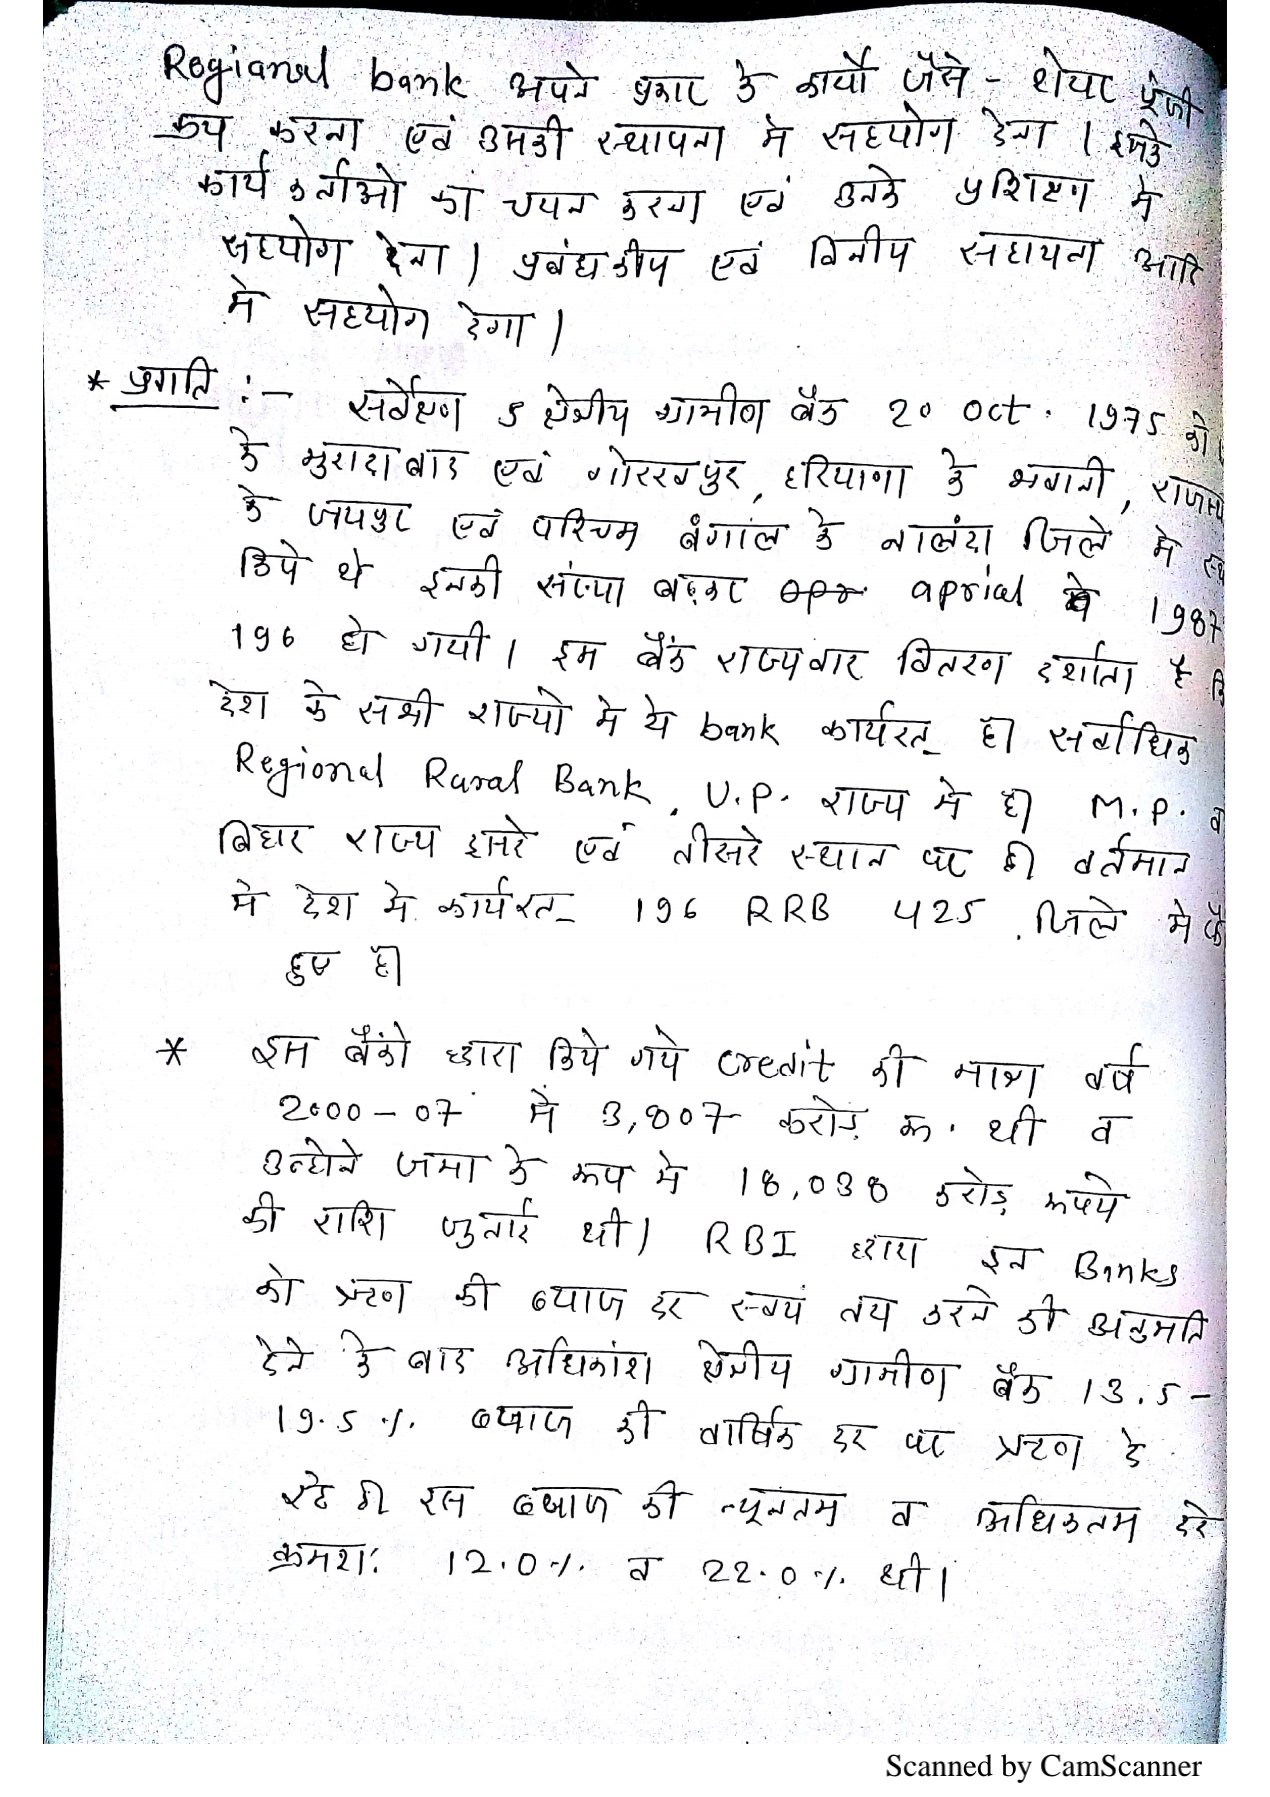 Regianal bank अपने प्रकार के कार्यो जैसे - शेयर पूंजी
क्रय करना एवं उसकी स्थापना मे सहयोग देना । इसके
कार्य कर्ताओ का चयन करना एवं उनके प्रशिक्षण मे
सहयोग देना । प्रबंधकीय एवं वित्तीय सहायता आदि
मे सहयोग देगा ।
* प्रगति :- सर्वेक्षण 5 क्षेत्रीय ग्रामीण बैंक 20 Oct. 1975 को
के मुरादाबाद एवं गोरखपुर, हरियाणा के भवानी,
के जयपुर एवं पश्चिम बंगाल के नालंदा जिले मे
किये थे इनकी संख्या बढ़कर aprial 1987
196 हो गयी । इस बैंक राज्यवार वितरण दर्शाता है
देश के सभी राज्यो मे ये bank कार्यरत है। सर्वाधिक
Regional Rural Bank, U.P. राज्य मे है। M.P. व
बिहार राज्य दूसरे एवं तीसरे स्थान पर है। वर्तमान
मे देश मे कार्यरत 196 RRB 425 जिले मे
हुए है।
* इस बैंको द्वारा किये गये Credit की मात्रा वर्ष
2000-07 मे 3,807 करोड़ रू. थी व
उन्होने जमा के रूप मे 18,038 करोड़ रूपये
की राशि जुटाई थी। RBI द्वारा इन Banks
को ऋण की ब्याज दर स्वयं तय करने की अनुमति
देने के बाद अधिकांश क्षेत्रीय ग्रामीण बैंक 13.5-
19.5 %. ब्याज की वार्षिक दर पर ऋण दे
रहे है। इस ब्याज की न्यूनतम व अधिकतम दरे
क्रमश: 12.0%. व 22.0%. थी।
Scanned by CamScanner